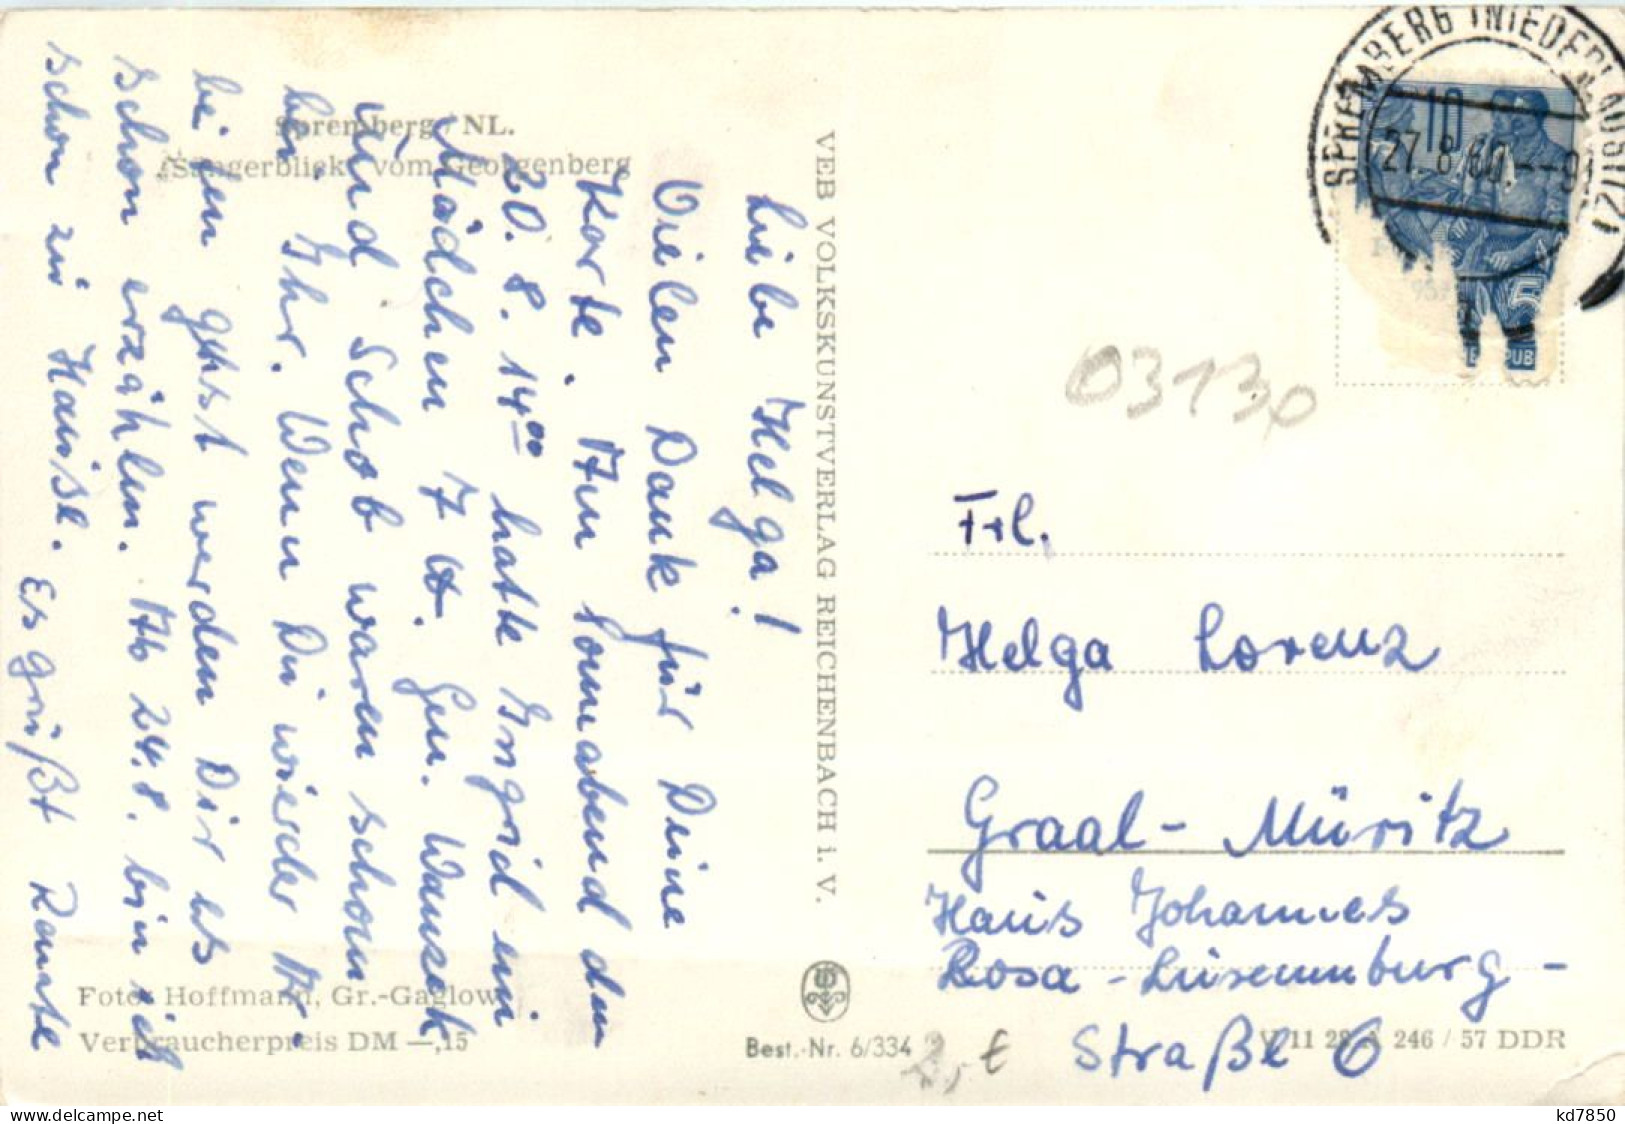 Spremberg / NL.
„Sängerblick" vom Georgenberg
Liebe Helga!
Vielen Dank für Deine
Karte. Am Sonnabend dem
20. 8. 14⁰⁰ hatte Ingrid ein
Mädchen 7 ℔. Gen. Wausek
und Schob waren schon
bei Ihr. Wenn Du wieder
bei uns werden Dir es
schon erzählen. Ab 24. 8. bin ich
schon zu Hause. Es grüßt Renate
Foto: Hoffmann, Gr.-Gaglow
Verbraucherpreis DM —,15
VEB VOLKSKUNSTVERLAG REICHENBACH i. V.
Best.-Nr. 6/334
2,- €
SPREMBERG (NIEDERLAUSITZ)
27.8.60.--9
10
5
PUB
03130
Frl.
Helga Lorenz
Graal-Müritz
Haus Johannes
Rosa-Luxemburg-
Straße 6
V 11 28 A 246 / 57 DDR
www.delcampe.net
kd7850